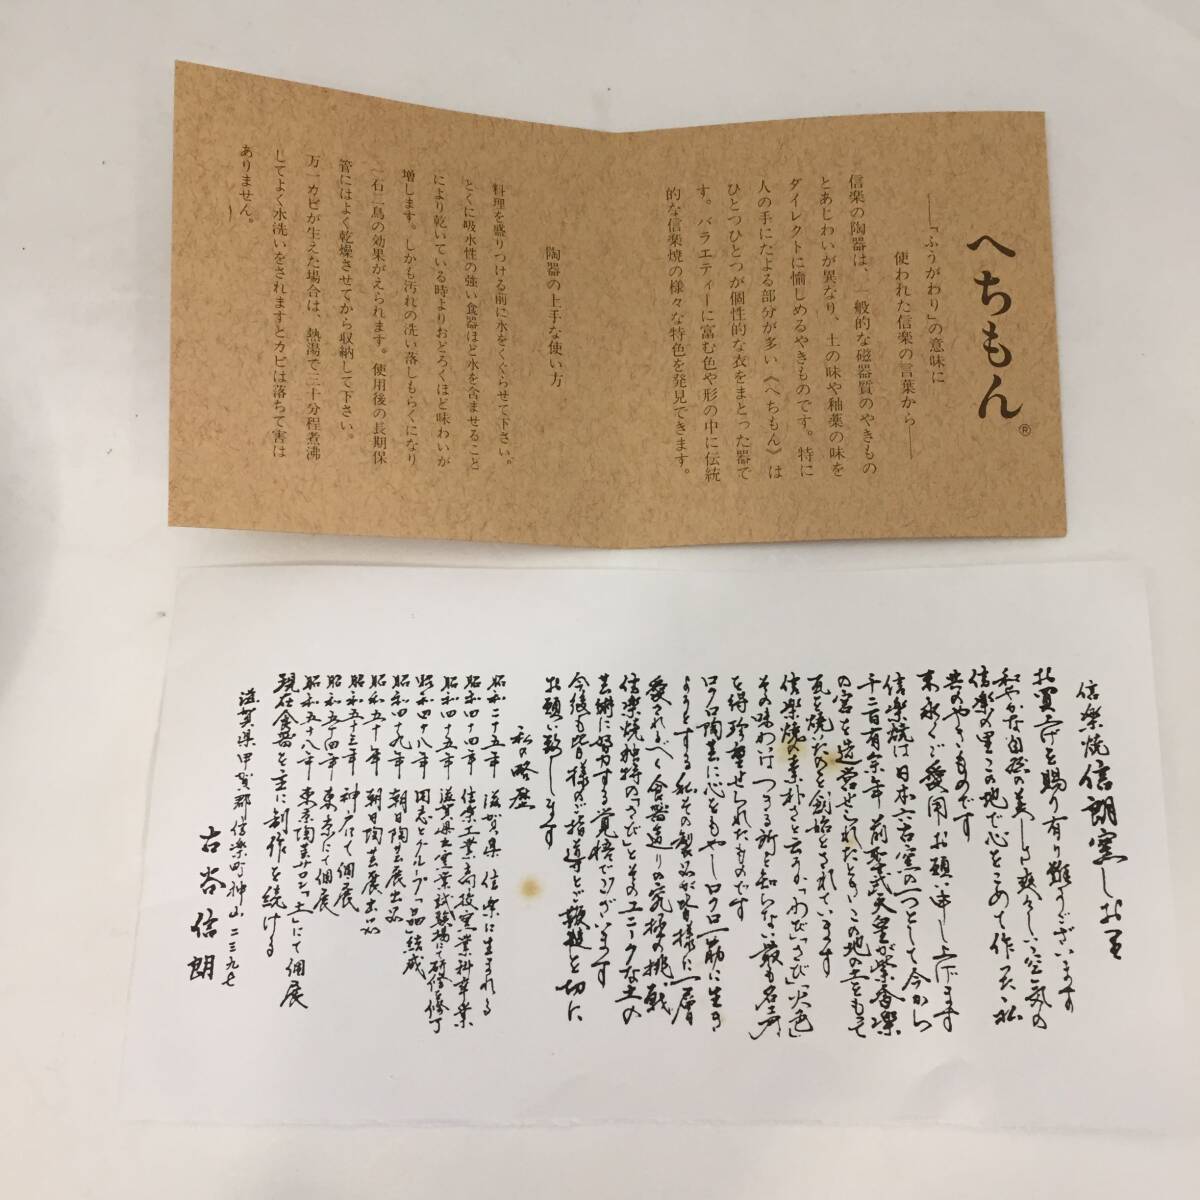 へちもん®
――「ふうがわり」の意味に
使われた信楽の言葉から――
信楽の陶器は、一般的な磁器質のやきもの
とあじわいが異なり、土の味や釉薬の味を
ダイレクトに愉しめるやきものです。特に
人の手にたよる部分が多い《へちもん》は
ひとつひとつが個性的な衣をまとった器で
す。バラエティーに富む色や形の中に伝統
的な信楽焼の様々な特色を発見できます。
陶器の上手な使い方
料理を盛りつける前に水をくぐらせて下さい。
とくに吸水性の強い食器ほど水を含ませること
により乾いている時よりおどろくほど味わいが
増します。しかも汚れの洗い落しもらくになり
一石二鳥の効果がえられます。使用後の長期保
管にはよく乾燥させてから収納して下さい。
万一カビが生えた場合は、熱湯で二十分程煮沸
してよく水洗いをされますとカビは落ちて害は
ありません。
信楽焼信朗窯しおり
お買上げを賜り有り難うございます
和やかな自然の美しさ爽々しい空気の
信楽の里この地で心をこめて作った私
共のやきものです
末永くご愛用お願い申し上げます
信楽焼は日本六古窯の一つとして今から
千二百有余年前聖武天皇が紫香楽
の宮を造営せられたときこの地の土をもって
瓦を焼いたのを創始とされています
信楽焼の素朴さと云うか「わび」「さび」「火色」
その味わいはつきる所を知らない最も名声
を得珍重せられたものです
ロクロ陶芸に心をもやしロクロ一筋に生き
ようとする私その製品が皆様に一層
愛されるべく食器造りの究極の挑戦
信楽焼独特の「さび」とそのユニークな土の
芸術に努力する覚悟でございます
今後も皆様のご指導とご鞭撻を切に
お願い致します
私の略歴
昭和二十五年 滋賀県信楽に生まれる
昭和四十四年 信楽工業高校窯業科卒業
昭和四十五年 滋賀県立窯業試験場にて研修を修了
昭和四十八年 同志とグループ「品」結成
昭和四十九年 朝日陶芸展出品
昭和五十年 朝日陶芸展出品
昭和五十三年 神戸にて個展
昭和五十四年 東京にて個展
昭和五十八年 東京陶芸サロン「土」にて個展
現在食器を主に制作を続ける
滋賀県甲賀郡信楽町神山二三九七
古谷信朗